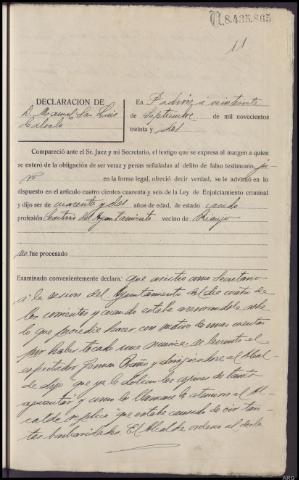 N.8.435.865
11
DECLARACION DE
D. Manuel San Luis
En Padrón a veintisiete
de Septiembre de mil novecientos
treinta y seis
Compareció ante el Sr. Juez y mi Secretario, el testigo que se expresa al margen a quien
se enteró de la obligación de ser veraz y penas señaladas al delito de falso testimonio, ju-
ró en la forma legal, ofreció decir verdad, se le advirtió en lo
dispuesto en el artículo cuatro cientos cuarenta y seis de la Ley de Enjuiciamiento criminal
y dijo ser de cuarenta y seis años de edad, de estado casado
profesión del Ayuntamiento vecino de
no fue procesado
Examinado convenientemente declara: que asistió como Secretario
a la sesion del Ayuntamiento del dia
los corrientes y cuando estaba
lo que procedia hacer con motivo
por haber tocado una musica se levantó el
espectador German y dirigiendose al Alcal-
de dijo que ya le dolian los de tanto
aguantar y como le llamase la atencion el Al-
calde replicó que estaba cansado de oir tan-
tas barbaridades. El Alcalde ordenó al
ARG